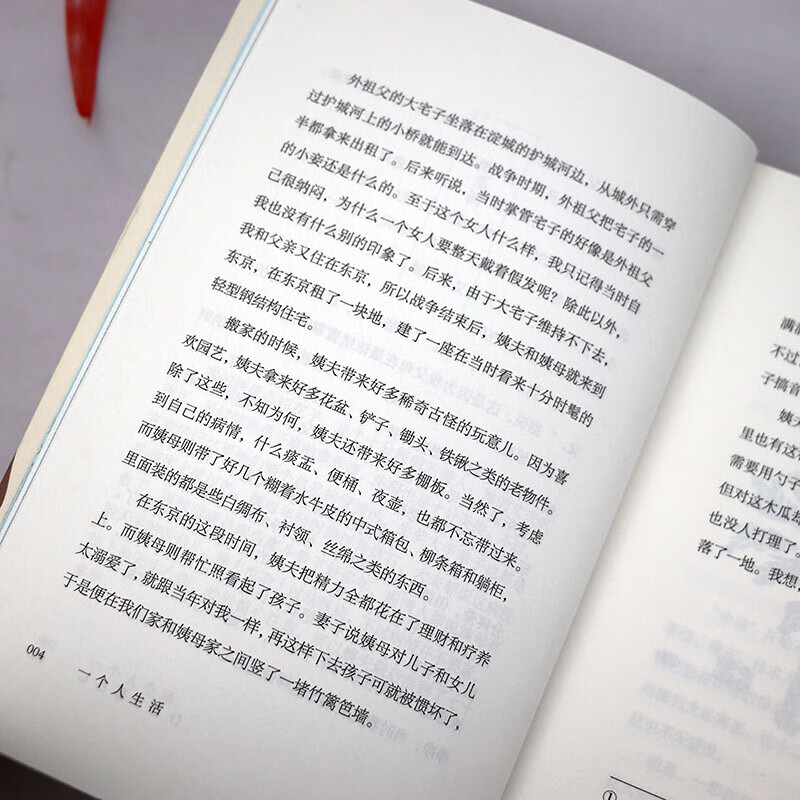 外祖父的大宅子坐落在淀城的护城河边，从城外只需穿
过护城河上的小桥就能到达。战争时期，外祖父把宅子的一
半都拿来出租了。后来听说，当时掌管宅子的好像是外祖父
的小妾还是什么的。至于这个女人什么样，我只记得当时自
己很纳闷，为什么一个女人要整天戴着假发呢？除此以外，
我也没有什么别的印象了。后来，由于大宅子维持不下去，
我和父亲又住在东京，所以战争结束后，姨夫和姨母就来到
东京，在东京租了一块地，建了一座在当时看来十分时髦的
轻型钢结构住宅。
搬家的时候，姨夫带来好多稀奇古怪的玩意儿。因为喜
欢园艺，姨夫拿来好多花盆、铲子、锄头、铁锹之类的老物件。
除了这些，不知为何，姨夫还带来好多棚板。当然了，考虑
到自己的病情，什么痰盂、便桶、夜壶，也都不忘带过来。
而姨母则带了好几个糊着水牛皮的中式箱包、柳条箱和躺柜，
里面装的都是些白绸布、衬领、丝绵之类的东西。
在东京的这段时间，姨夫把精力全都花在了理财和疗养
上。而姨母则帮忙照看起了孩子。妻子说姨母对儿子和女儿
太溺爱了，就跟当年对我一样，再这样下去孩子可就被惯坏了，
于是便在我们家和姨母家之间竖了一堵竹篱笆墙。
004
一个人生活
不过
子搞音
姨夫
里也有这
需要用勺子
但对这木瓜
也没人打理了。
落了一地。我想，
①